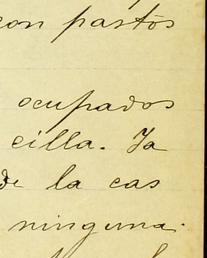 con pastos
ocupados
cilla. Ya
de la cas
ninguna.